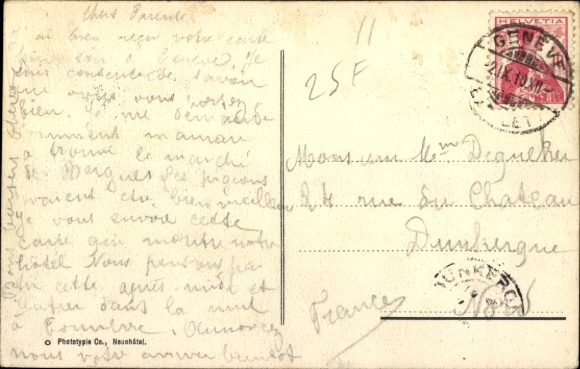 Chers Parents
J'ai bien reçu votre carte
hier soir à Genève. Je
suis contente de savoir
que vous vous portez
bien. Je me demande
comment maman
a trouvé le marché
de Bergues les pigeons
valent être bien meilleur
Je vous envoie cette
carte qui montre notre
hôtel Nous pensons
cette après midi et
entrer dans la nuit
à Annoncez
nous votre arrivée bientôt
Phototypie Co., Neuchâtel.
11
25F
HELVETIA
GENÈVE
IX.10.XII
Monsieur Mme Dequeker
24 rue du Chateau
Dunkerque
DUNKERQUE
Nord
France